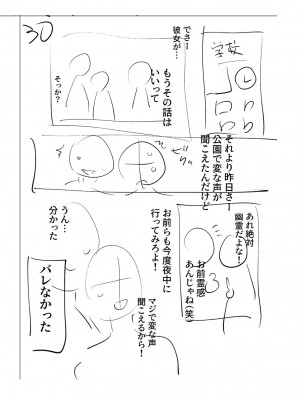 30
学校
でさー
彼女が…
もうその話は
いいって
そっか?
それより昨日さー
公園で変な声が
聞こえたんだけど
あれ絶対
幽霊だよな!
お前霊感
あんじゃね(笑
お前らも今度夜中に
行ってみろよ!
マジで変な声
聞こえるから!
うん…
分かった
バレなかった